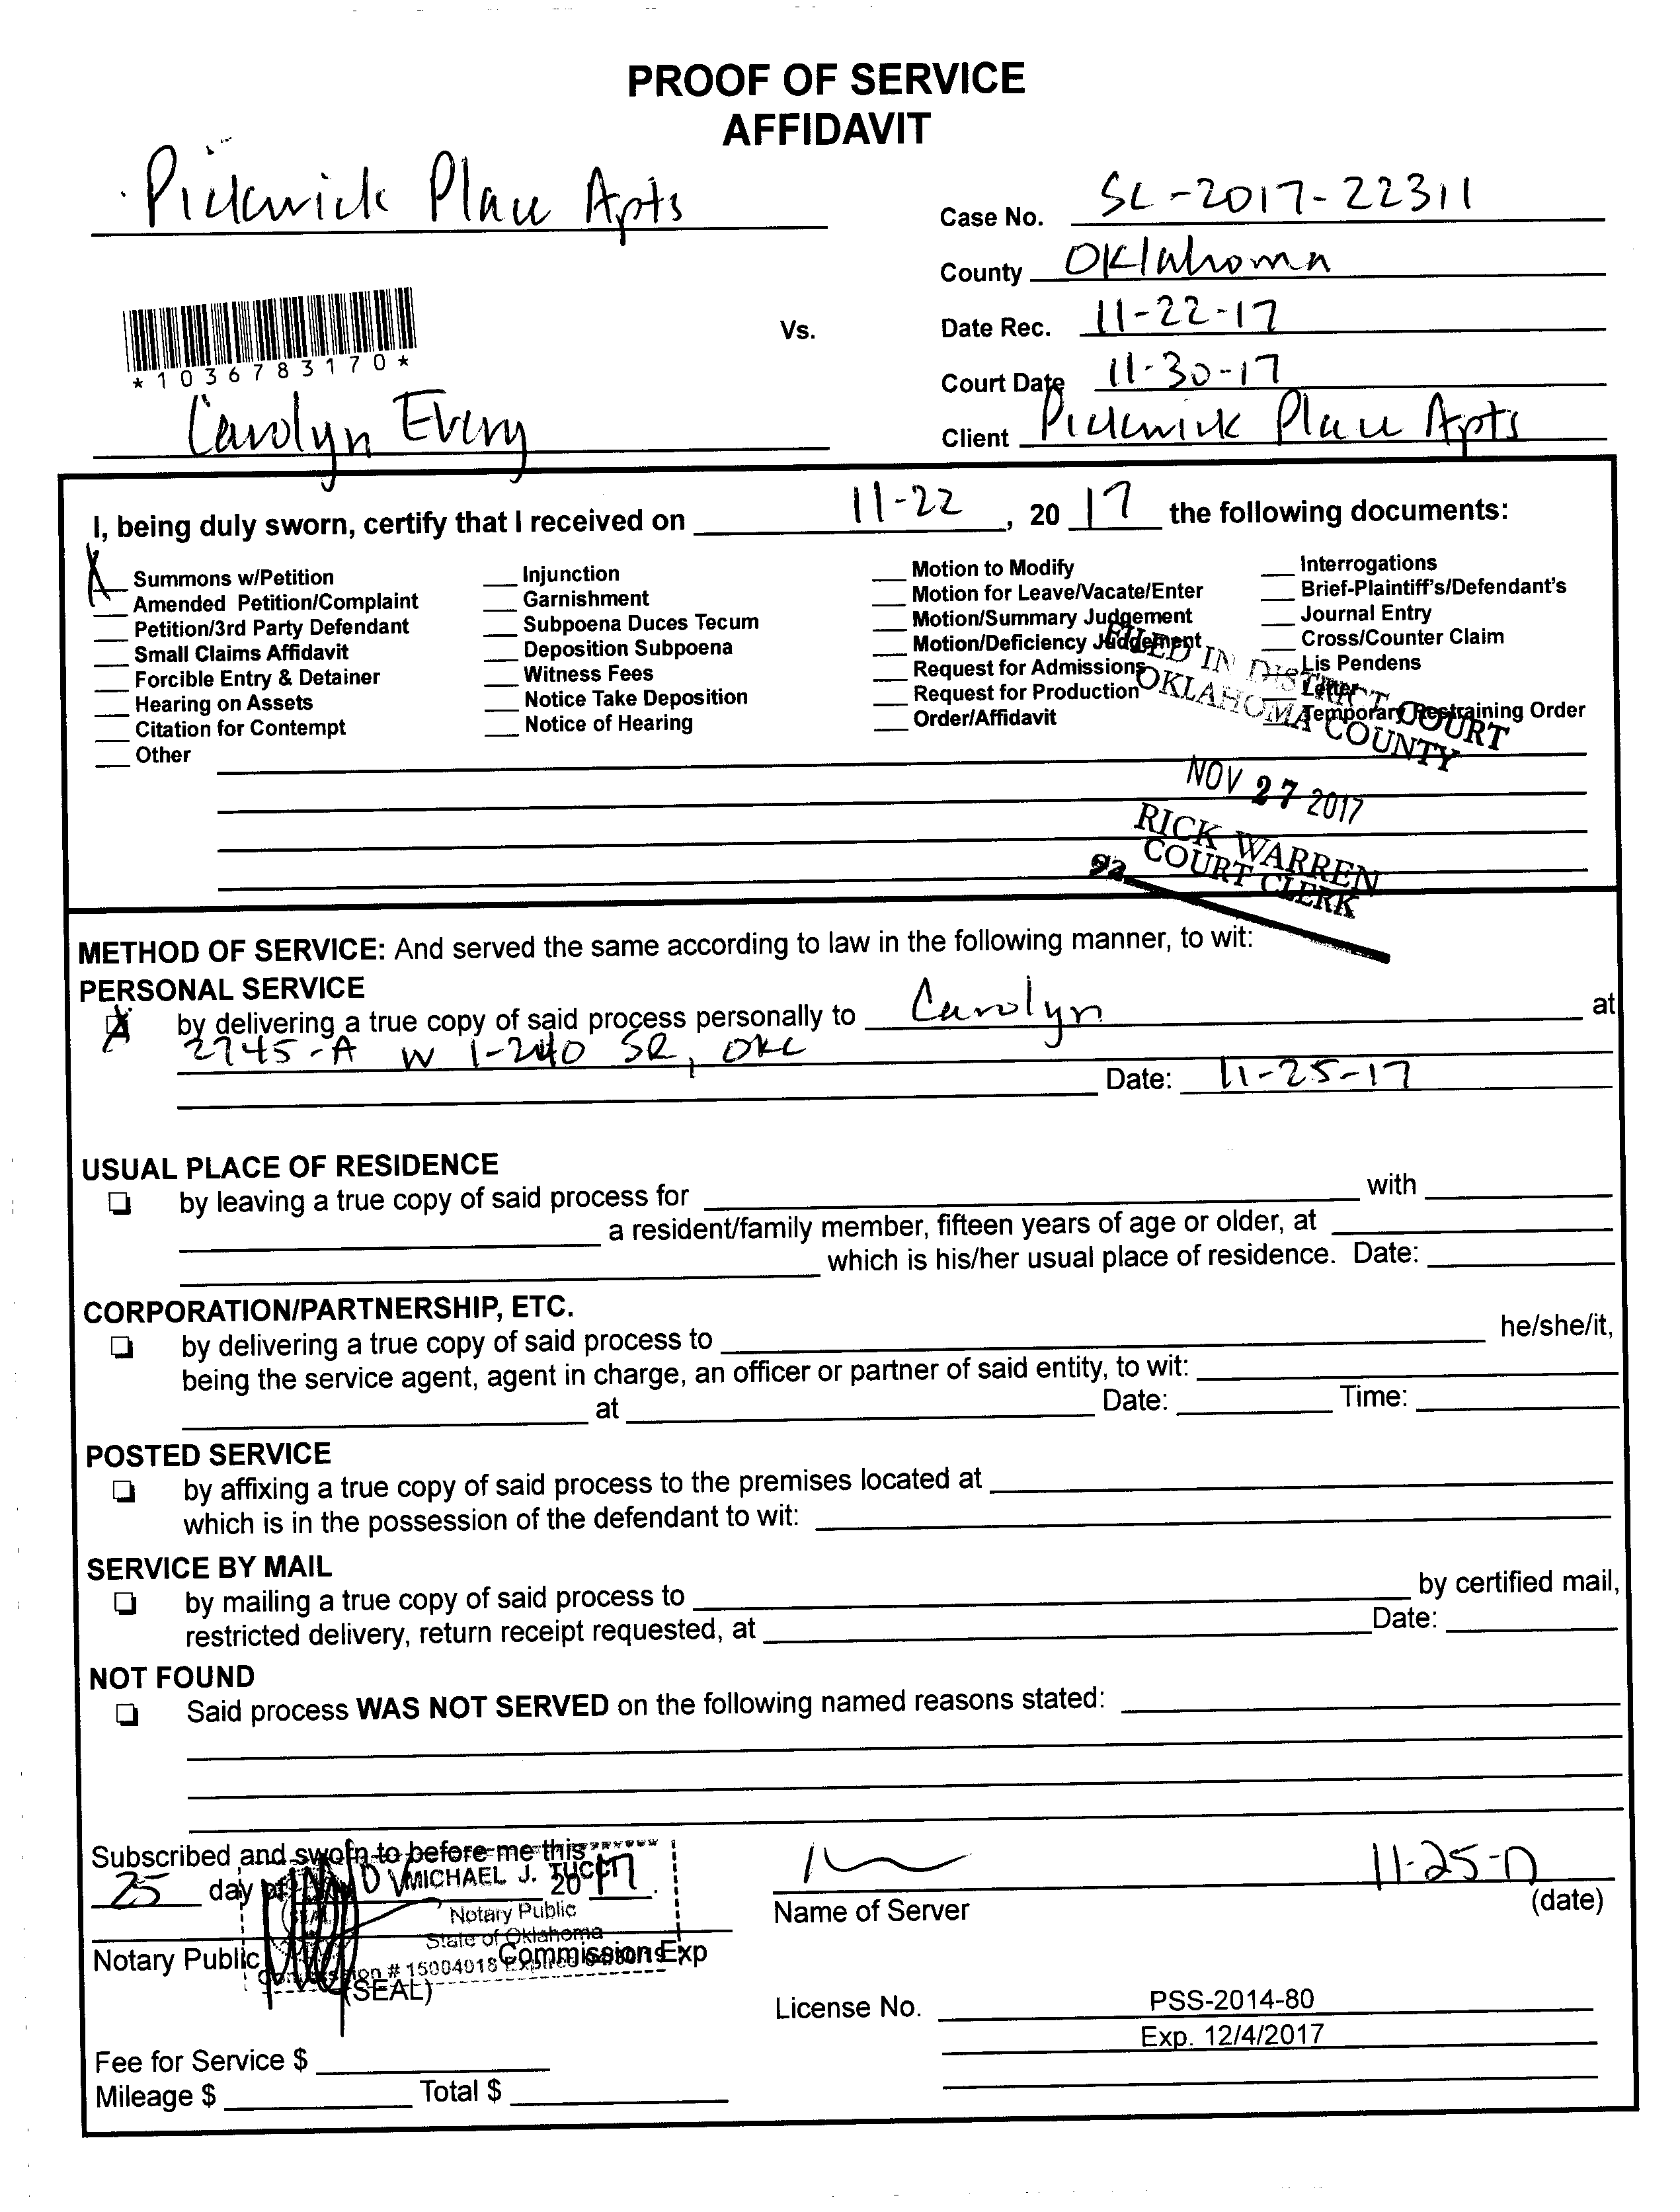 PROOF OF SERVICE
AFFIDAVIT
Pickwick Place Apts
Case No. SC-2017-22311
County Oklahoma
Vs.
Date Rec. 11-22-17
*1036783170*
Court Date 11-30-17
Carolyn Every
Client Pickwick Place Apts
I, being duly sworn, certify that I received on 11-22, 20 17 the following documents:
X Summons w/Petition
Amended Petition/Complaint
Petition/3rd Party Defendant
Small Claims Affidavit
Forcible Entry & Detainer
Hearing on Assets
Citation for Contempt
Other
Injunction
Garnishment
Subpoena Duces Tecum
Deposition Subpoena
Witness Fees
Notice Take Deposition
Notice of Hearing
Motion to Modify
Motion for Leave/Vacate/Enter
Motion/Summary Judgement
Motion/Deficiency Judgement
Request for Admissions
Request for Production
Order/Affidavit
Interrogations
Brief-Plaintiff's/Defendant's
Journal Entry
Cross/Counter Claim
Lis Pendens
Letter
Temporary Restraining Order
FILED IN DISTRICT COURT
OKLAHOMA COUNTY
NOV 27 2017
RICK WARREN
COURT CLERK
92
METHOD OF SERVICE: And served the same according to law in the following manner, to wit:
PERSONAL SERVICE
X by delivering a true copy of said process personally to Carolyn at
2745-A W I-240 SR, OKC
Date: 11-25-17
USUAL PLACE OF RESIDENCE
by leaving a true copy of said process for with
a resident/family member, fifteen years of age or older, at
which is his/her usual place of residence. Date:
CORPORATION/PARTNERSHIP, ETC.
by delivering a true copy of said process to he/she/it,
being the service agent, agent in charge, an officer or partner of said entity, to wit:
at Date: Time:
POSTED SERVICE
by affixing a true copy of said process to the premises located at
which is in the possession of the defendant to wit:
SERVICE BY MAIL
by mailing a true copy of said process to by certified mail,
restricted delivery, return receipt requested, at Date:
NOT FOUND
Said process WAS NOT SERVED on the following named reasons stated:
Subscribed and sworn to before me this
25 day of Nov 20 17.
MICHAEL J. TUCCI
Notary Public
State of Oklahoma
Commission # 15004018
Notary Public Commission Exp
(SEAL)
11-25-17
Name of Server (date)
License No. PSS-2014-80
Exp. 12/4/2017
Fee for Service $
Mileage $ Total $